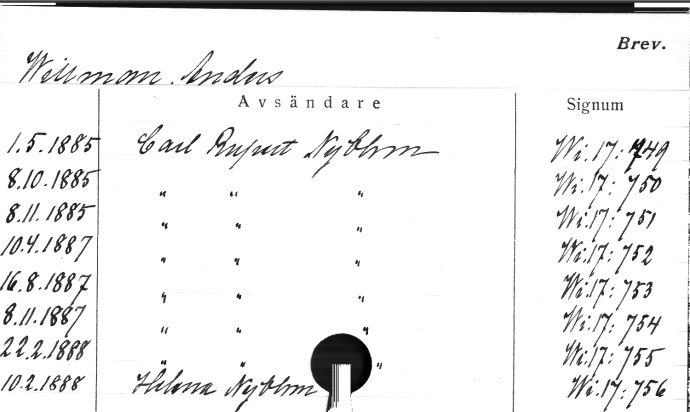 Brev.
Willman. Anders
Avsändare Signum
1.5.1885 Carl Rupert Nyblom Wi.17:749
8.10.1885 " " " Wi.17:750
8.11.1885 " " " Wi.17:751
10.4.1887 " " " Wi.17:752
16.8.1887 " " " Wi.17:753
8.11.1887 " " " Wi.17:754
22.2.1888 " " " Wi.17:755
10.2.1888 Helena Nyblom Wi.17:756